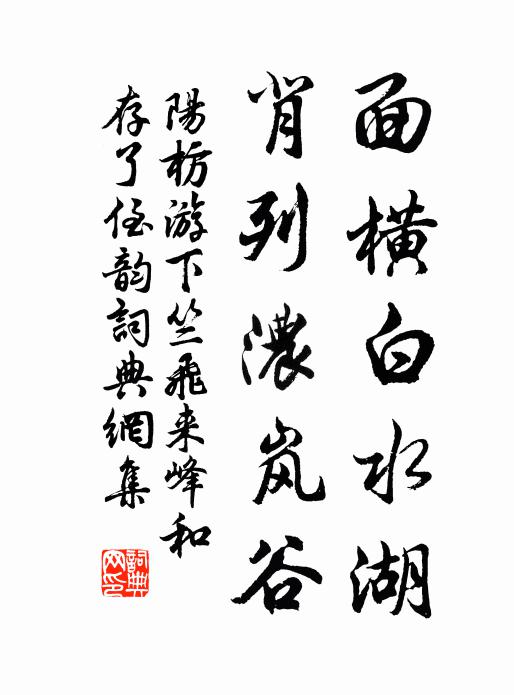 面橫白水湖
背列濃岚谷
陽枋游下竺飛来峰和
存了侄韵詞典網集
詞典
网印